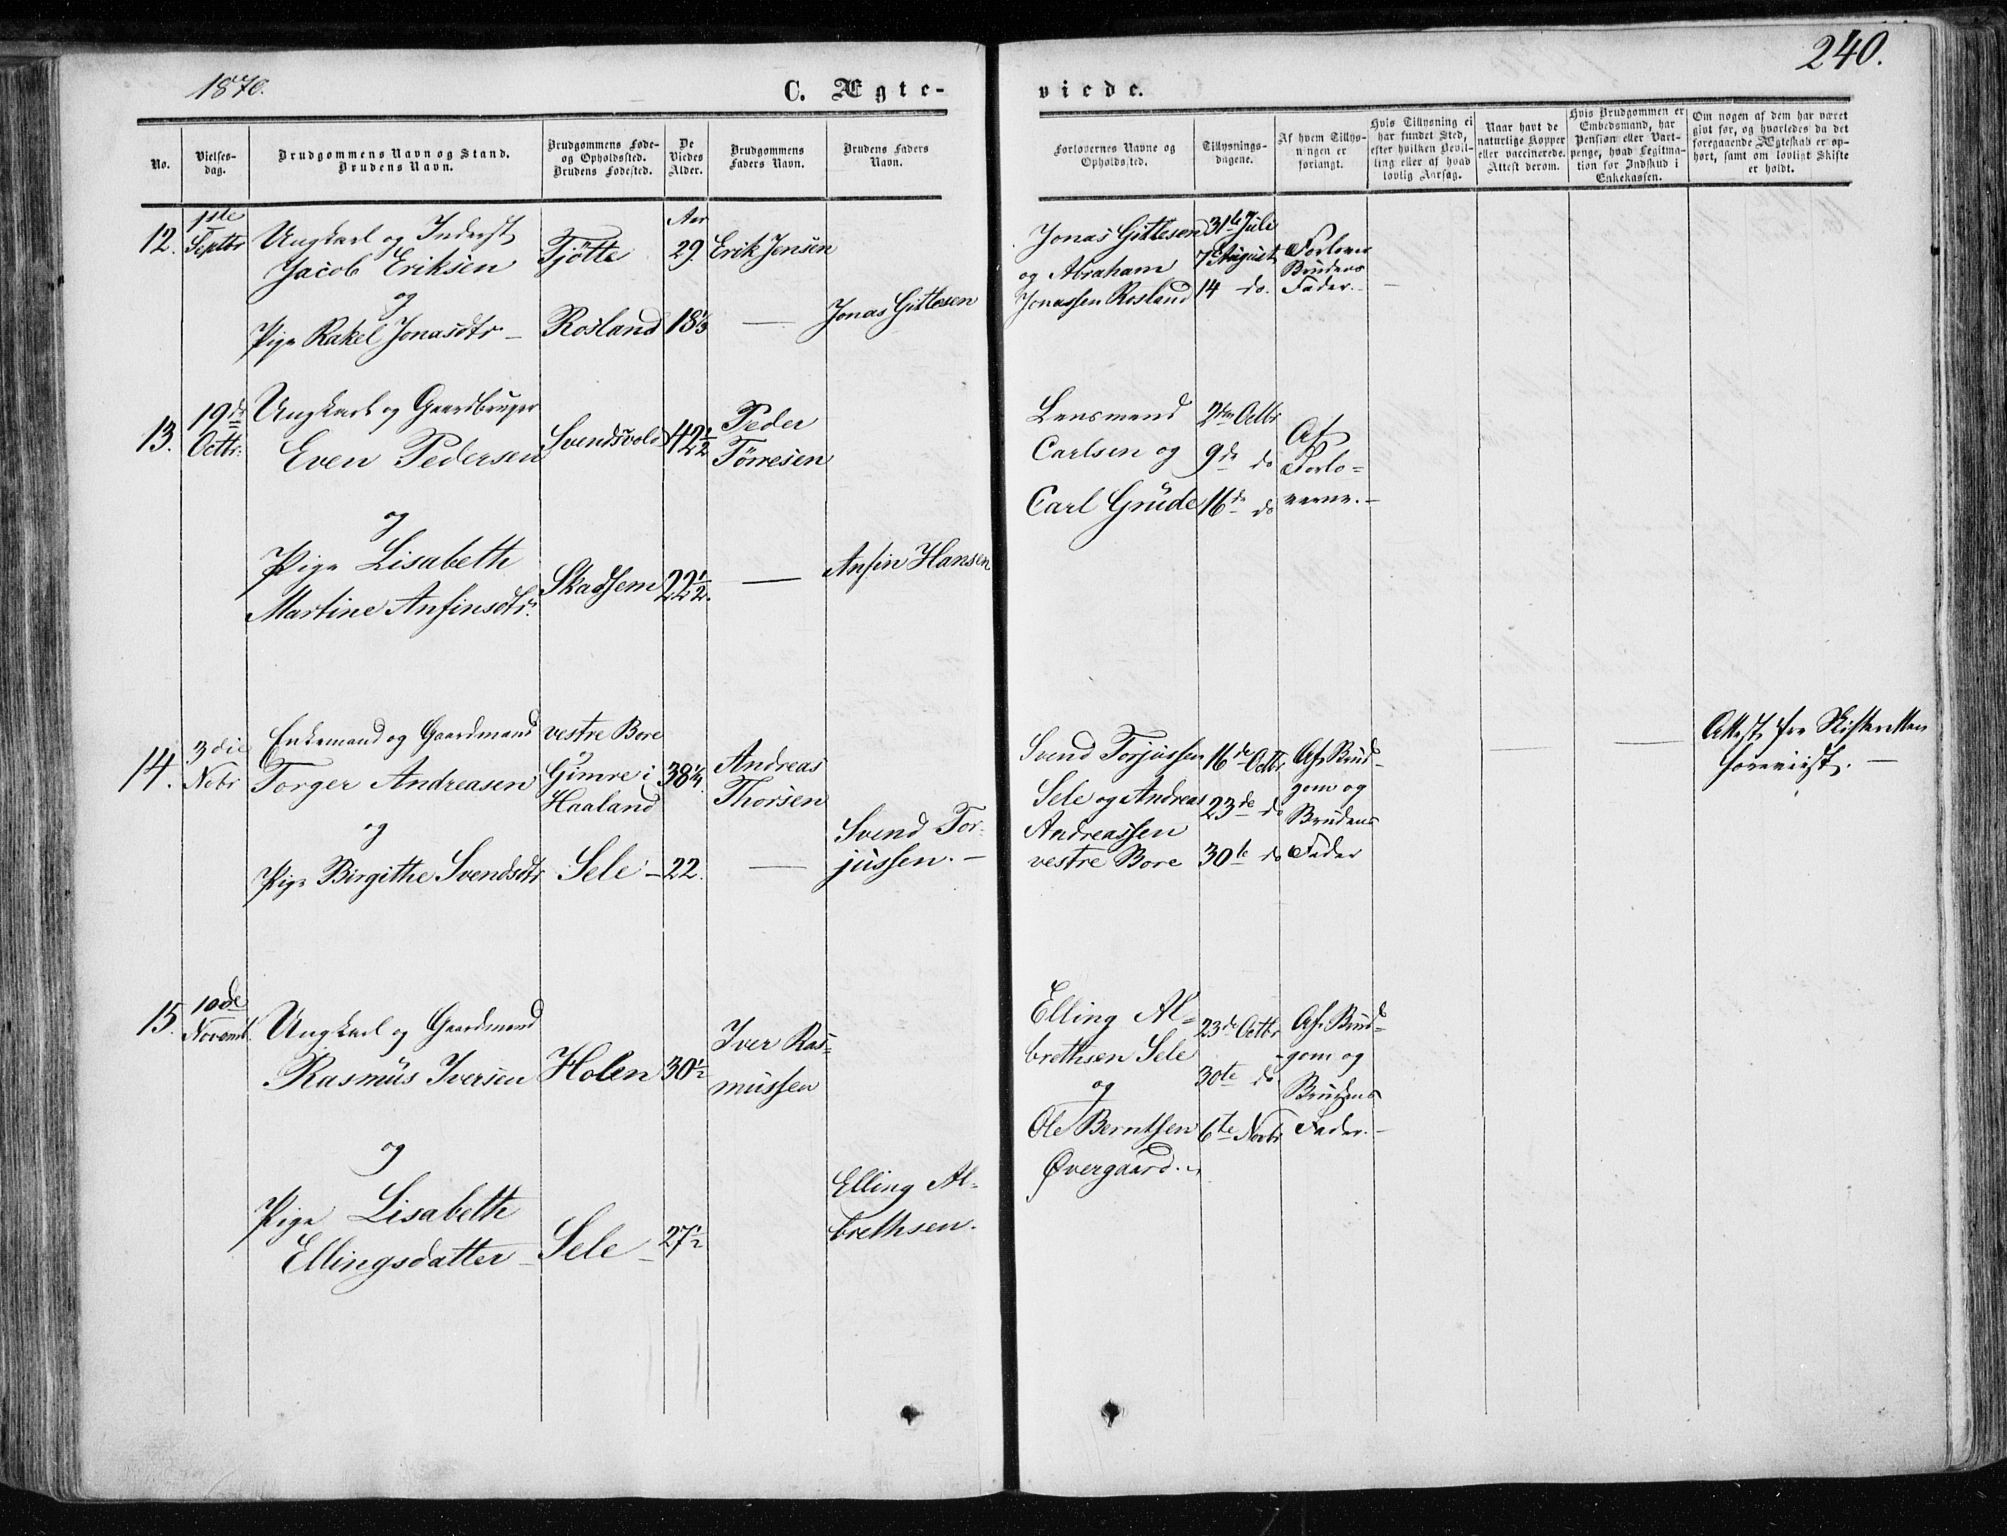 1870.
C. Ægte-
viede.
240.
No.
Vielses-
dag.
Brudgommens Navn og Stand.
Brudens Navn.
Brudgommens Føde-
og Opholdssted.
Brudens Fødested.
De
Viedes
Alder.
Brudgommens
Faders Navn.
Brudens Faders
Navn.
Forlovernes Navne og
Opholdssted.
Tillysnings-
dagene.
Af hvem Tillys-
ningen er
forlangt.
Hvis Tillysning ei
har fundet Sted,
efter hvilken Bevil-
ling eller af hvad
lovlig Aarsag.
Naar havt de
naturlige Kopper
eller vaccinerede.
Attest derom.
Hvis Brudgommen er
Embedsmand, har
Pension eller Vart-
penge, hvad Legitima-
tion for Indskud i
Enkekassen.
Om nogen af dem har været
gift før, og hvorledes da det
foregaaende Ægteskab er op-
hørt, samt om lovligt Skifte
er holdt.
12.
1ste
Septbr
Ungkarl og Inderst
Jacob Eriksen
og
Pige Rakel Jonasdtr
Tjötte
Rosland
Aar
29.
18⅓
Erik Jensen
—
Jonas Gittlesen
Jonas Gittlesen
og Abraham
Jonassen Rosland
31te Juli
7de August
14 do.
Forlover
Brudens
Fader. —
13.
19de
Octbr.
Ungkarl og Gaardbruger
Even Pedersen
og
Pige Lisabeth
Martine Anfinsdtr.
Svendsvold
Skadsem
42½
22½.
Peder
Tørresen
—
Anfin Hansen
Lensmand
Carlsen og
Carl Grude
2den Octbr
9de do
16de do
Af
Forlo=
verne. —
14.
3die
Nobr
Enkemand og Gaardmand
Torger Andreasen
og
Pige Birgithe Svendsdtr
vestre Bore
Gimre i
Haaland
Sele —
38¼.
22.
Andreas
Thorsen
—
Svend Tor-
jussen. —
Svend Torjussen
Sele og Andreas
Andreassen
vestre Bore
16de Octbr
23de do
30te do
Af Brud-
gom og
Brudens
Fader
Attest fra Skifteretten
foreviist. —
15.
10de
Novemb.
Ungkarl og Gaardmand
Rasmus Iversen
og
Pige Lisabeth
Ellingsdatter
Holen
Sele —
30½
27½
Iver Ras=
mussen
Elling Al-
brethsen.
Elling Al=
brethsen Sele
og
Ole Berntsen
Øvergaard.
23de Octbr
30te do
6te Novbr
Af Brud=
gom og
Brudens
Fader. —